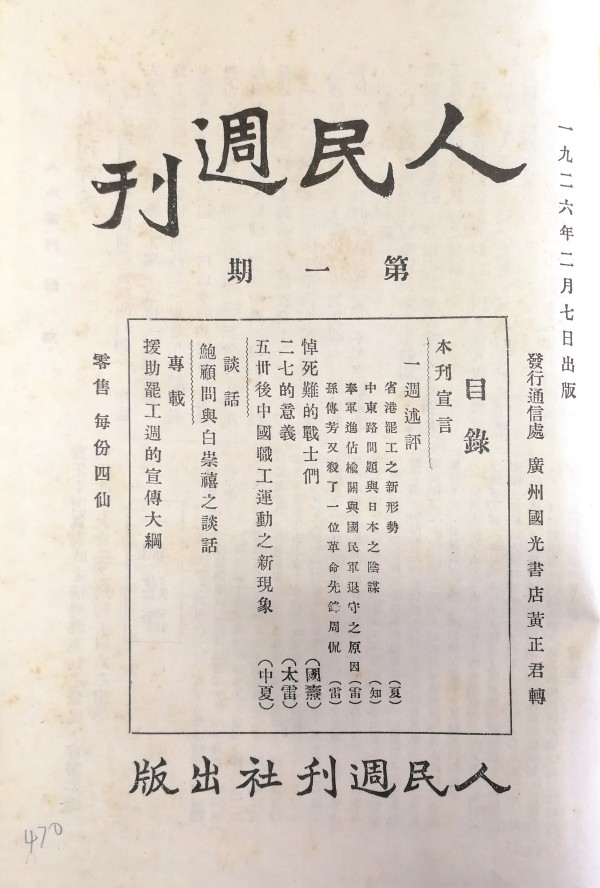 人民週刊
第一期
一九二六年二月七日出版
發行通信處 廣州國光書店黃正君轉
目錄
本刊宣言
一週述評
省港罷工之新形勢 (夏)
中東路問題與日本之陰謀 (知)
奉軍進佔楡關與國民軍退守之原因 (雷)
孫傳芳又殺了一位革命先鋒周侃 (雷)
悼死難的戰士們 (國燾)
二七的意義 (太雷)
五卅後中國職工運動之新現象 (中夏)
談話
鮑顧問與白崇禧之談話
專載
援助罷工週的宣傳大綱
零售 每份四仙
人民週刊社出版
470